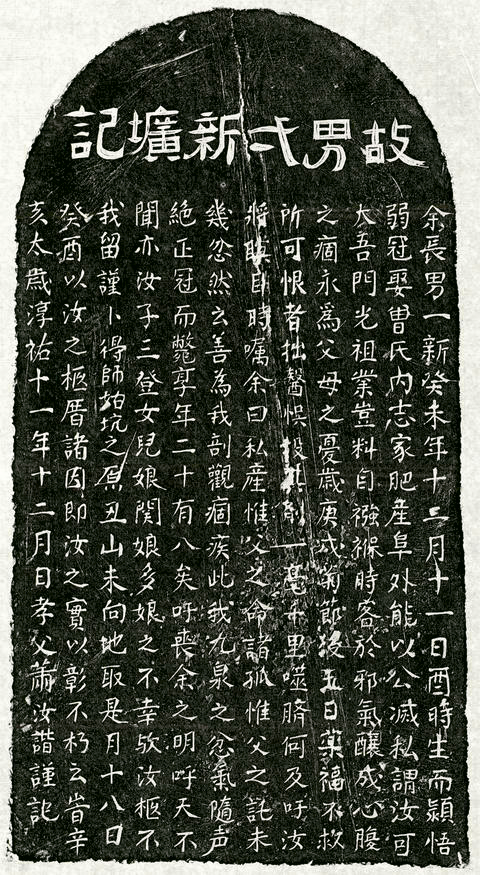 故男弌新壙記
余長男一新癸未年十二月十一日酉時生而頴悟
弱冠娶曽氏内志家肥産阜外能以公滅私謂汝可
大吾門光祖業豈料自襁褓時客於邪氣釀成心腹
之痼永爲父母之憂歳庚戍菊節後五日藥福不救
所可恨者拙醫悮投其劑一毫千里噬臍何及吁汝
將瞑目時囑余曰私産惟父之命諸孤惟父之託未
幾忽然云善為我剖觀痼疾此我九泉之忿氣隨声
絶正冠而斃享年二十有八矣吁喪余之明吁天不
聞亦汝子三登女兒娘閏娘多娘之不幸欤汝柩不
我留謹卜得師姑坑之原丑山未向地取是月十八日
癸酉以汝之柩厝諸因即汝之實以彰不朽云旹辛
亥太歳淳祐十一年十二月日孝父蕭汝諧謹記